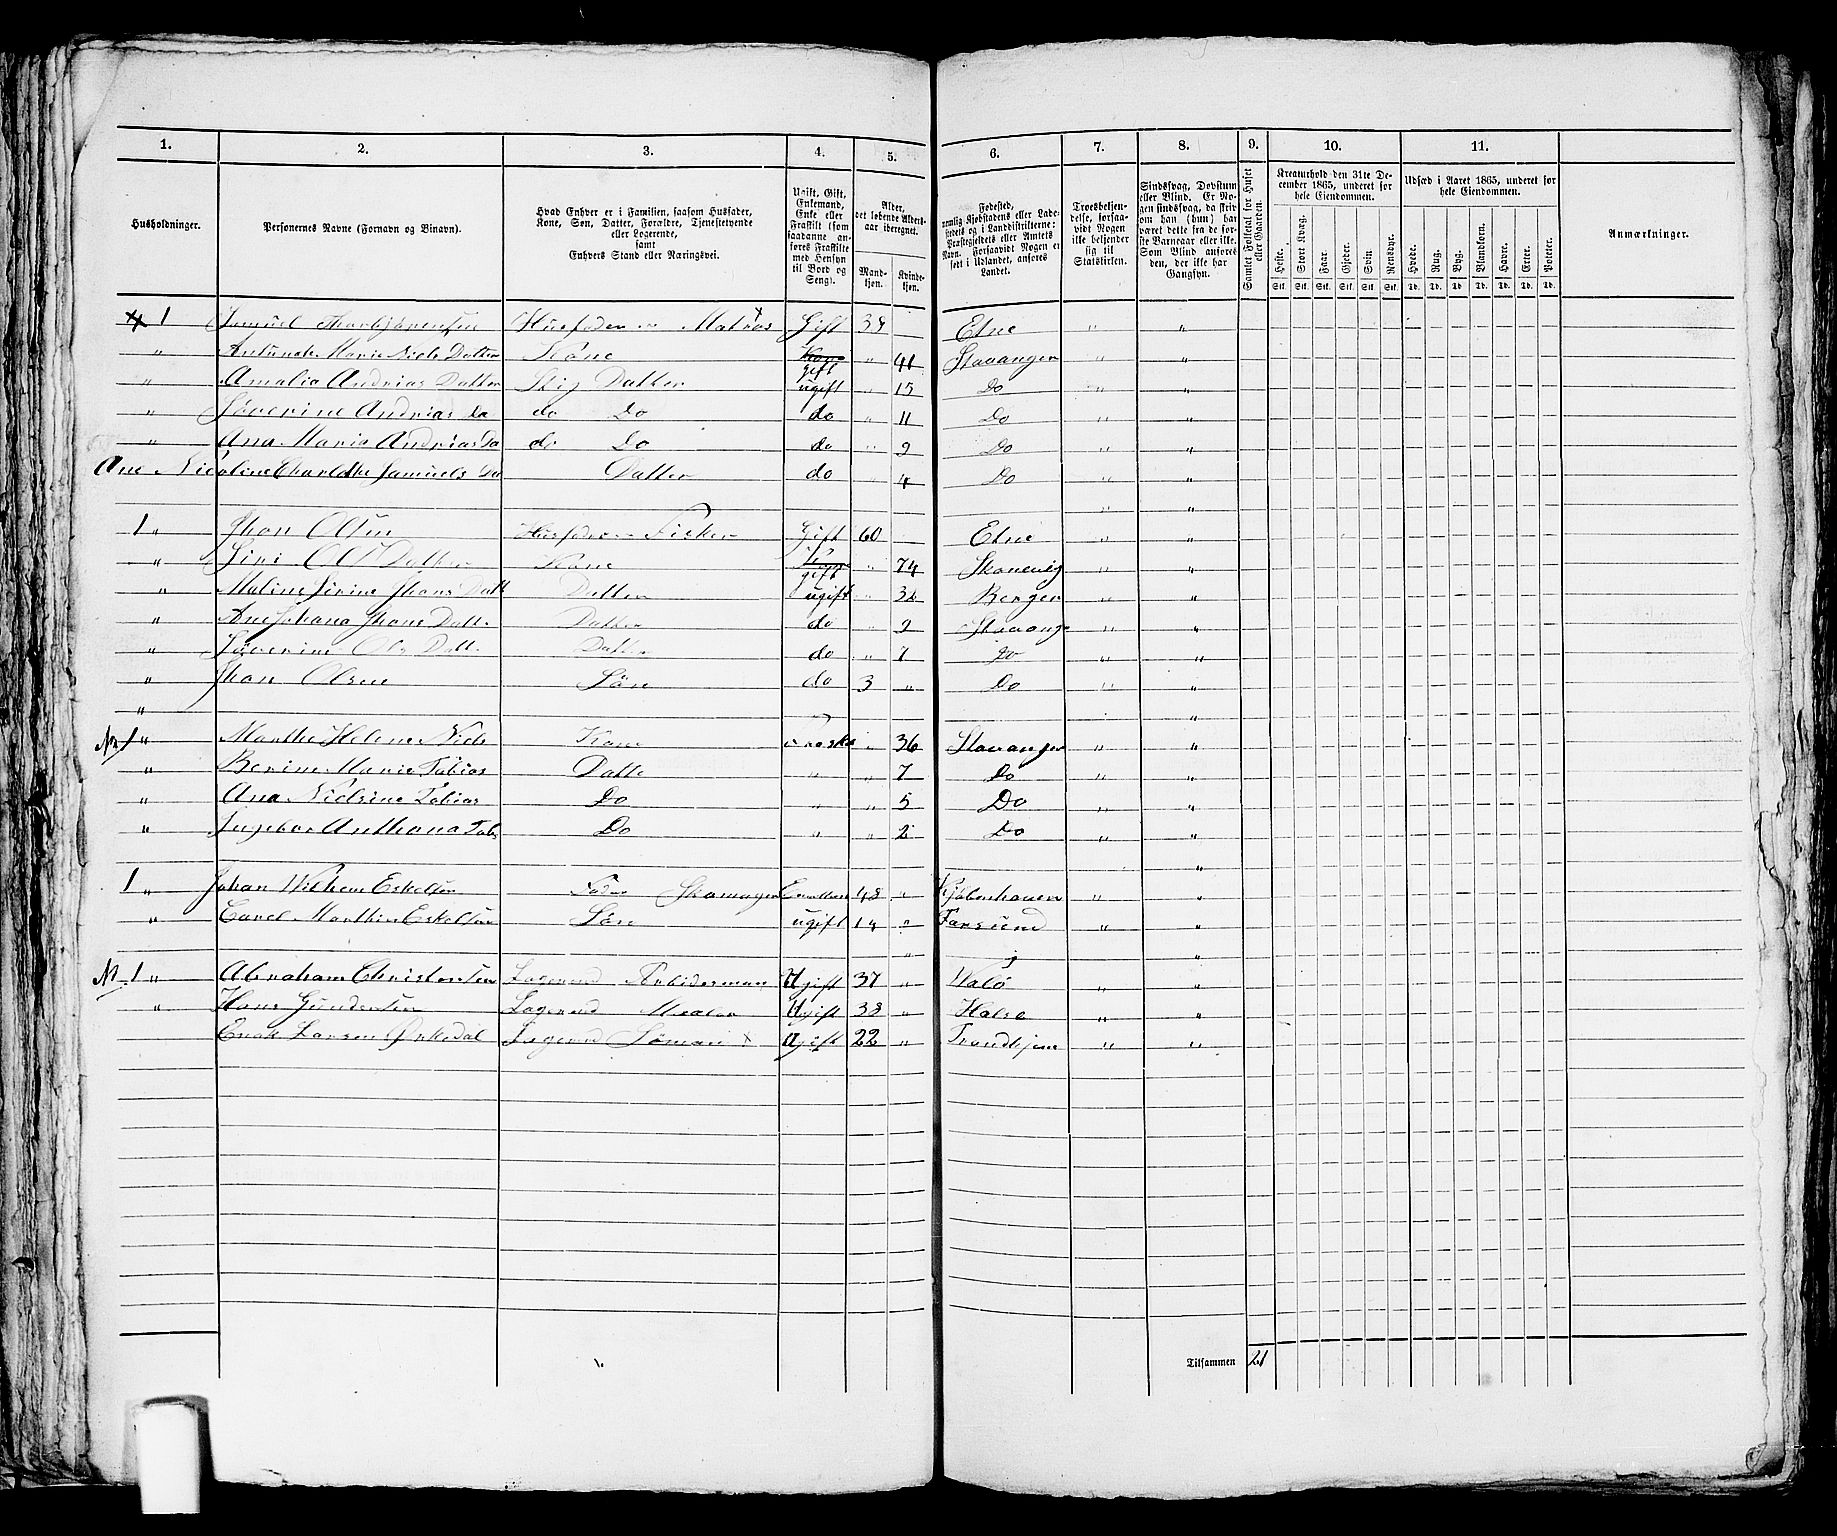 1. 2. 3. 4. 5. 6. 7. 8. 9. 10. 11.
Husholdninger.
Personernes Navne (Fornavn og Binavn).
Hvad Enhver er i Familien, saasom Husfader, Kone, Søn, Datter, Forældre, Tjenestetyende eller Logerende, samt Enhvers Stand eller Næringsvei.
Ugift, Gift, Enkemand, Enke eller Fraskilt (som saadanne anføres Fraskilte med Hensyn til Bord og Seng).
Alder, det løbende Aldersaar iberegnet.
Mandkjøn.
Kvindekjøn.
Fødested, nemlig Kjøbstadens eller Ladestedets og i Landdistrikterne: Præstegjeldets eller Amtets Navn. Forsaavidt Nogen er født i Udlandet, anføres Landet.
Troesbekjendelse, forsaavidt Nogen ikke bekjender sig til Statskirken.
Sindssvag, Døvstum eller Blind. Er Nogen sindssvag, da skrives, om han (hun) har været dette fra de første Barneaar eller ikke. Som Blind anføres den, der ikke har Gangsyn.
Samlet Folketal for Huset eller Gaarden.
Kreaturhold den 31te December 1865, underet for hele Eiendommen.
Heste. Stort Kvæg. Faar. Gjeder. Svin Rensdyr.
Stk. Stk. Stk. Stk. Stk. Stk.
Udsæd i Aaret 1865, underet for hele Eiendommen.
Hvede. Rug. Byg. Blandkorn. Havre. Erter. Poteter.
Td. Td. Td. Td. Td. Td. Td.
Anmærkninger.
1 Samuel Thorbjørensen Husfader Matros Gift 38 Etne " "
" Antunde Marie Niels Datter Kone gift " 41 Stavanger " "
" Amalia Andrias Datter Stig Datter ugift " 15 Do " "
" Søverine Andrias Da do Do do " 11 Do " "
" Ana Maria Andrias Da do Do do " 9 Do " "
Ane Nicoline Charlothe Samuels Da Datter do " 4 Do " "
1 " Jhon Olsen Husfader Fisker Gift 60 Etne " "
" Siri Ols Datter Kone gift " 74 Skonevig " "
" Maline Sirine Jhons Datt Datter ugift " 32 Bergen " "
" Ane Johana Jhons Datt. Datter do " 9 Stavange " "
" Søverine Ols Datt. Datter do " 7 Do " "
" Jhon Olsen Søn do 3 " Do " "
"
1 " Marthe Helene Niels Kone " 36 Stavanger " "
" Berine Marie Tobias Datte " " 7 Do " "
" Ana Nielsine Tobias Do " " 5 Do " "
" Ingebor Anthona Tobs Do " " 2 Do " "
1 " Johan Wilhem Eskelsen Fader Skomager 48 " Kjøbenhaven " "
" Carel Marthin Eskelsen Søn ugift 14 " Farsund " "
1 " Abraham Christensen Logerend Arbidesman Ugift 37 " " "
" Hans Gundersen Logerend Maaler Ugift 38 " Halse " "
Enok Larsen Ørkedal Logerend Sømand Ugift 22 " Trondhjem " "
Tilsammen 21